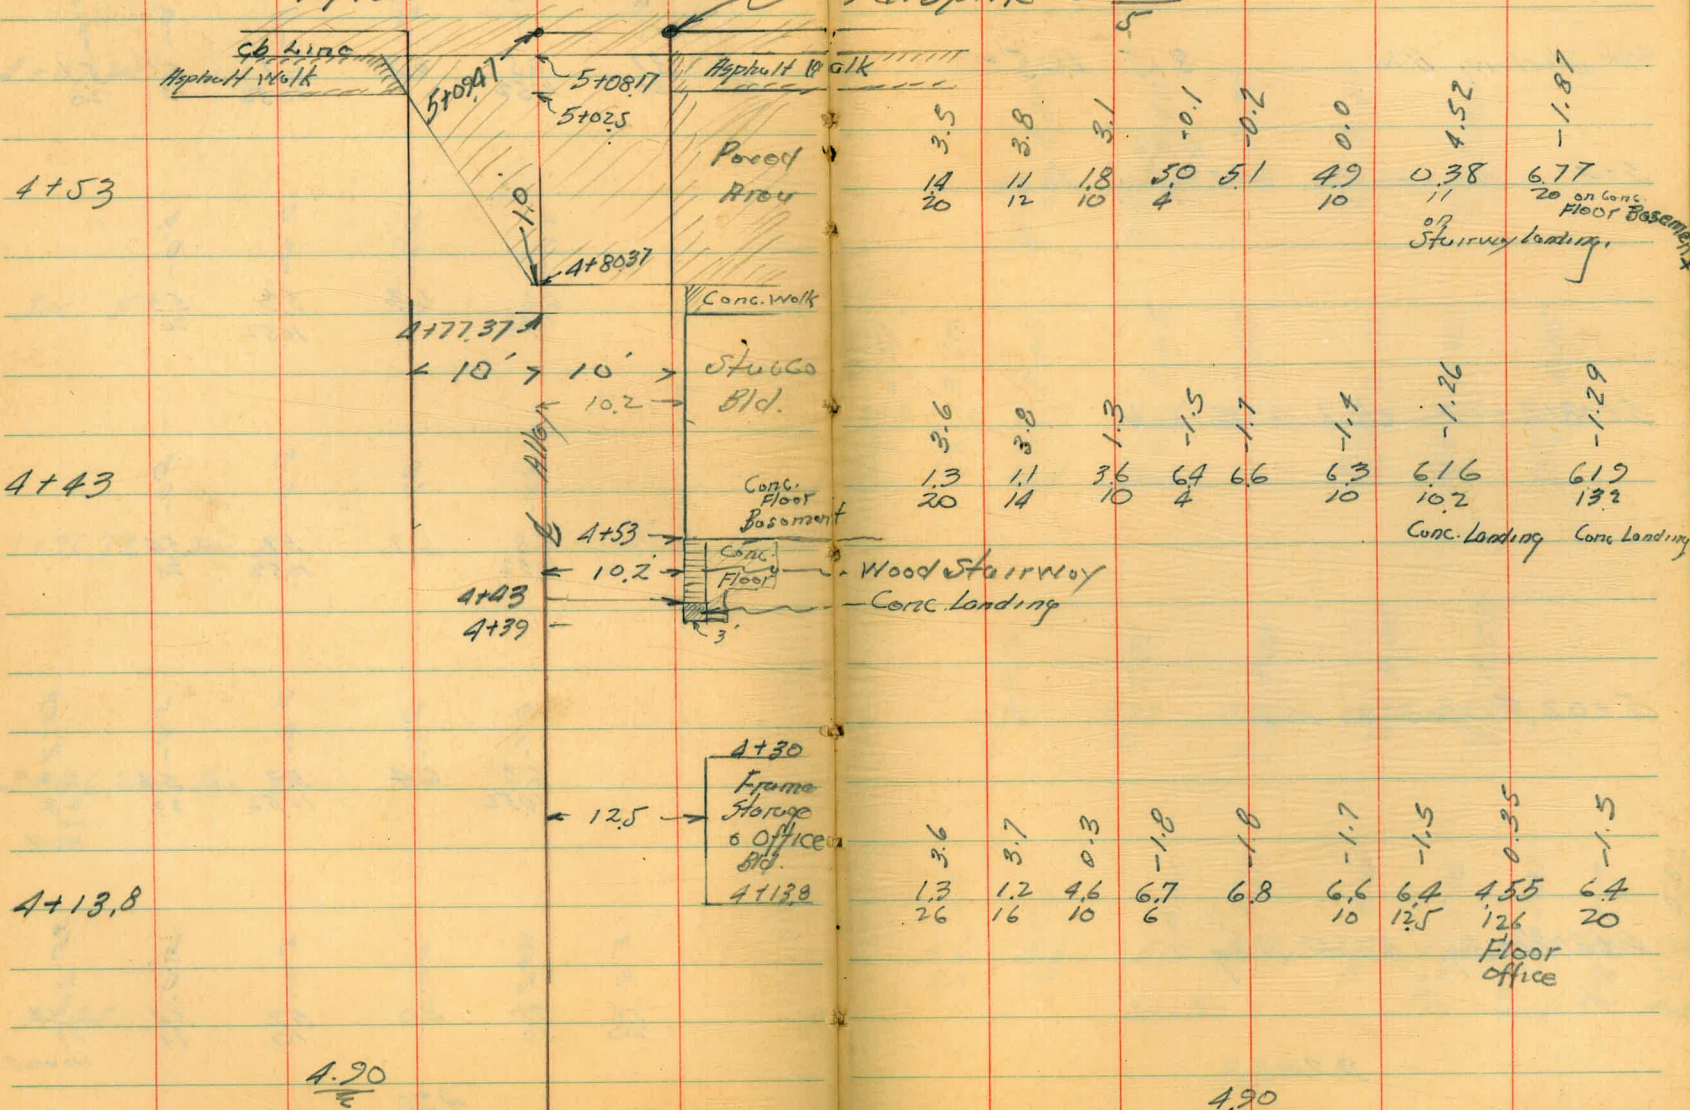 cb Line
Asphalt Walk
5+09.47
5+08.17
5+02.5
Asphalt Walk
Paved
Area
4+53
-1.0
4+80.37
Conc. Walk
4+77.37
10' 10'
10.2
Stucco
Bld.
Alley
4+43
Conc.
Floor
Basement
4+53
Conc.
Floor
10.2
Wood Stairway
4+43
Conc. Landing
4+39
3'
4+30
Frame
Storage
& Office
Bld.
4+13.8
12.5
4+13.8
4.90
3.5 3.8 3.1 -0.1 -0.2 0.0 4.52 -1.87
1.4 1.1 1.8 5.0 5.1 4.9 0.38 6.77
20 12 10 4 10 11 20 on Conc.
Floor Basement
on
Stairway landing.
3.6 3.8 1.3 -1.5 -1.7 -1.4 -1.26 -1.29
1.3 1.1 3.6 6.4 6.6 6.3 6.16 6.19
20 14 10 4 10 10.2 13.2
Conc. Landing Conc Landing
3.6 3.7 0.3 -1.8 -1.8 -1.7 -1.5 0.35 -1.5
1.3 1.2 4.6 6.7 6.8 6.6 6.4 4.55 6.4
26 16 10 6 10 12.5 12.6 20
Floor
Office
4.90